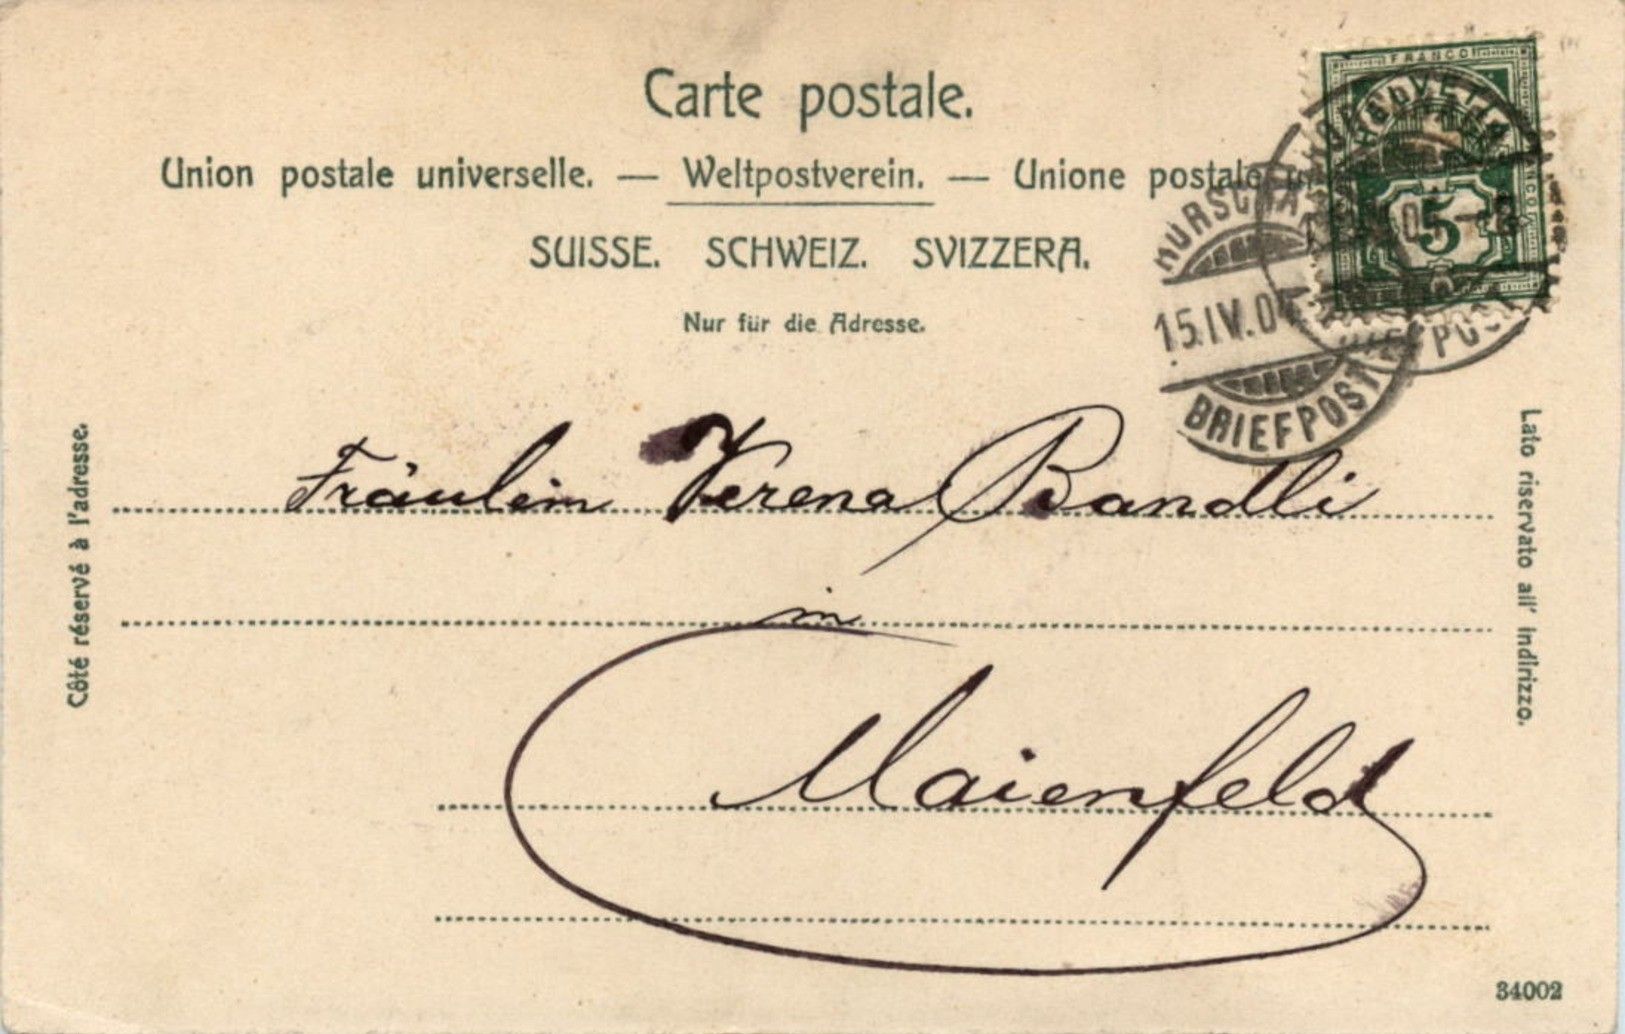 Carte postale.
Union postale universelle. — Weltpostverein. — Unione postale
SUISSE. SCHWEIZ. SVIZZERA.
Nur für die Adresse.
FRANCO
5
15.IV.0
BRIEFPOST
Côté réservé à l'adresse.
Lato riservato all' indirizzo.
Fräulein Verena Bandli
in
Maienfeld
34002